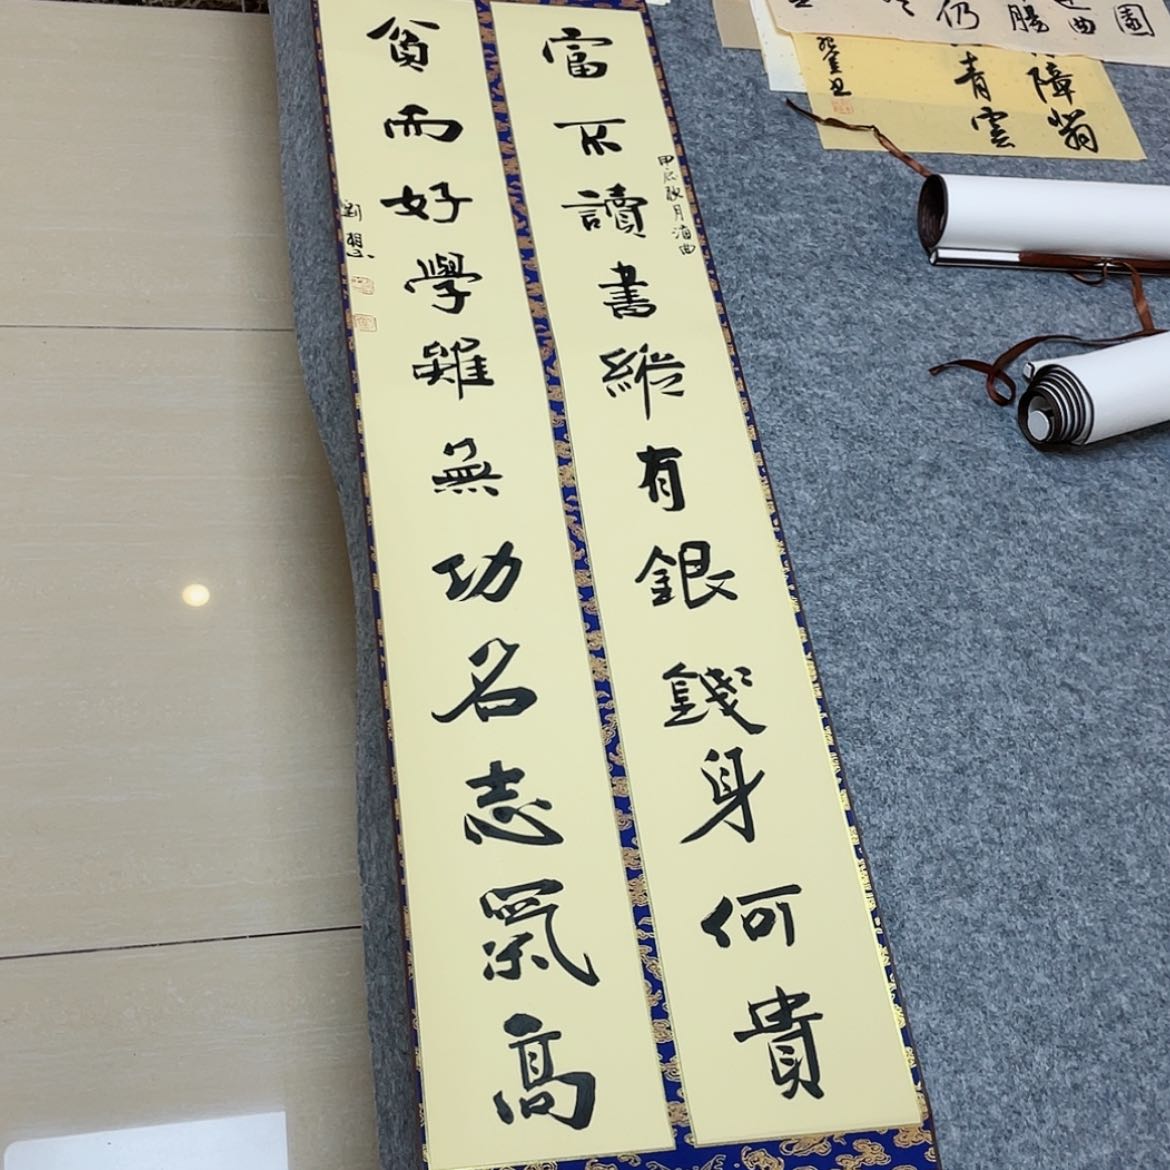 富不讀書縱有銀錢身何貴
甲辰秋月浦曲
貧而好學雖無功名志氣高
劉想
園
曲
腸
仍
障翁
青雲